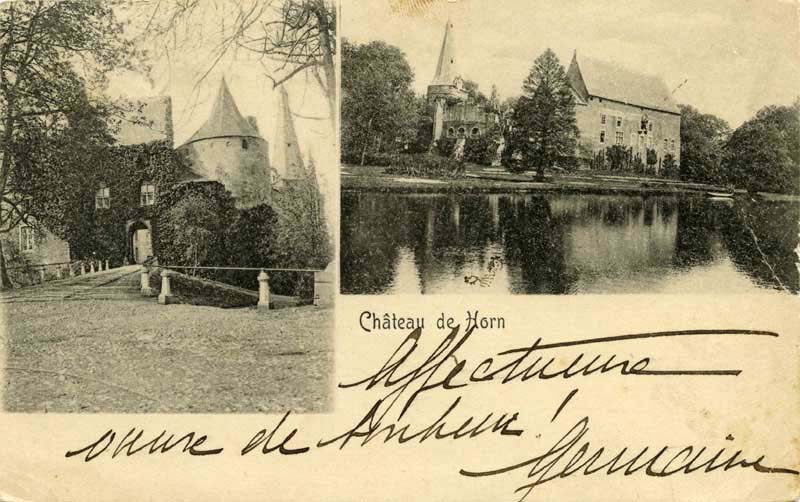 Château de Horn
Affectueux
vœux de Bonheur !
Germaine